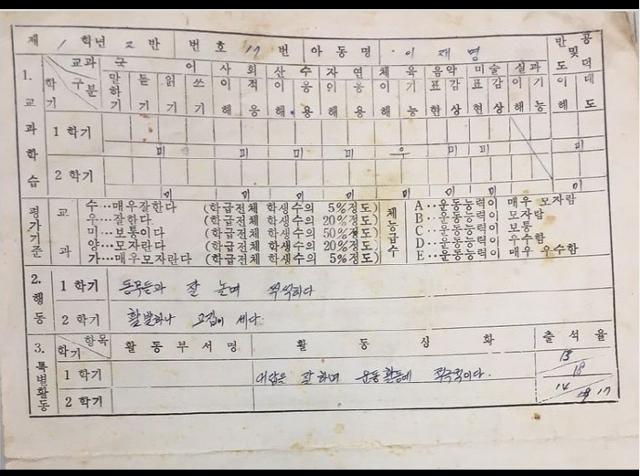 제 1 학년 2 반 번호 17 번 아동명 이 재 명
1. 교과학습
교과 구분 학기
국 어 사회 산수 자연 체육 음악 미술 실과 반공 및 도덕
말하기 듣기 읽기 쓰기 이해 적응 이해 응용 이해 응용 이해 기능 표현 감상 표현 감상 이해 기능 이해 태도
1 학기
미 미 미 미 우 미 미 미
2 학기
미 미 미 미 미 미 미
평가기준 교과
수…매우잘한다 (학급전체 학생수의 5%정도)
우…잘한다 (학급전체 학생수의 20%정도)
미…보통이다 (학급전체 학생수의 50%정도)
양…모자란다 (학급전체 학생수의 20%정도)
가…매우모자란다 (학급전체 학생수의 5%정도)
체능급수
A…운동능력이 매우 모자람
B…운동능력이 모자람
C…운동능력이 보통
D…운동능력이 우수함
E…운동능력이 매우 우수함
2. 행동
1 학기 동무들과 잘 놀며 씩씩하다
2 학기 활발하나 고집이 세다.
3. 특별활동
항목 학기 활동부서명 활동상황 출석율
1 학기 대답은 잘 하며 운동활동에 적극적이다.
2 학기